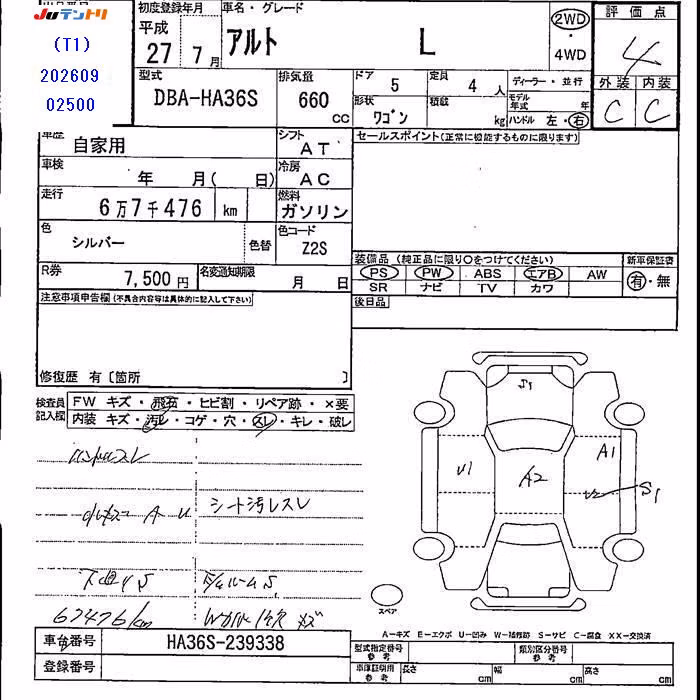 JUテントリ
(T1)
202609
02500
初度登録年月
平成
27 7月
車名・グレード
アルト L
2WD
・
4WD
評価点
4
外装 内装
C C
型式
DBA-HA36S
排気量
660 cc
ドア 5
定員 4 人
ディーラー・並行
形状 ワゴン
積載 kg
モデル年式 年
ハンドル 左・右
車歴
自家用
シフト
AT
セールスポイント(正常に機能するものに限ります)
車検
年 月( 日)
冷房
AC
走行
6万7千476 km
燃料
ガソリン
色
シルバー
色替
色コード
Z2S
装備品 (純正品に限り○をつけてください)
新車保証書
PS PW ABS エアB AW
有・無
SR ナビ TV カワ
R券
7,500円
名変通知期限
月 日
後日品
注意事項申告欄(不具合内容等は具体的に記入して下さい)
修復歴 有〔箇所 〕
検査員記入欄
FW キズ・飛石・ヒビ割・リペア跡・×要
内装 キズ・汚レ・コゲ・穴・スレ・キレ・破レ
ハンドルスレ
A U
シート汚レスレ
S
S
67476km
S1
U1
A2
A1
U2
S1
スペア
A-キズ E-エクボ U-凹み W-補修跡 S-サビ C-腐食 XX-交換済
車台番号
HA36S-239338
登録番号
型式指定番号
参考
類別区分番号
参考
車庫証明用
参考
長さ cm
幅 cm
高さ cm